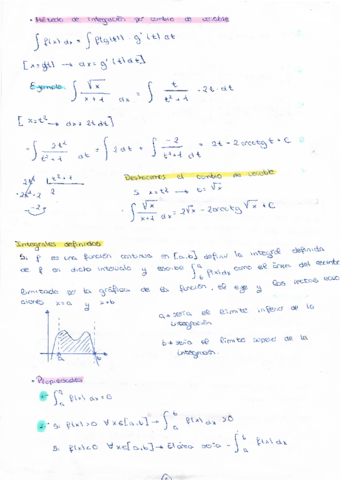 • Método de integración por cambio de variable
∫ f(x) dx = ∫ f(g(t)) · g'(t) dt
[x = g(t) → dx = g'(t) dt]
Ejemplo: ∫ √x / x+1 dx = ∫ t / t²+1 · 2t · dt
[x = t² → dx = 2t dt]
= ∫ 2t² / t²+1 dt = ∫ 2 dt + ∫ -2 / t²+1 dt = 2t - 2 arctg t + C
2t² | t²+1
-2t²-2 2
-2
Deshacemos el cambio de variable
Si x = t² → t = √x
∫ √x / x+1 dx = 2√x - 2 arctg √x + C
Integrales definidas
Si f es una función continua en [a,b] define la integral definida
de f en dicho intervalo y escribe ∫ f(x) dx como el área del recinto
limitado es la gráfica de la función, el eje y las rectas
ciones x=a y x=b
a → sería el límite inferior de la
integración
b → sería el límite superior de la
integración.
a b
• Propiedades
1- ∫ₐᵃ f(x) dx = 0
2- Si f(x) > 0 ∀x∈[a,b] → ∫ₐᵇ f(x) dx > 0
Si f(x) < 0 ∀x∈[a,b] → El área sería - ∫ₐᵇ f(x) dx